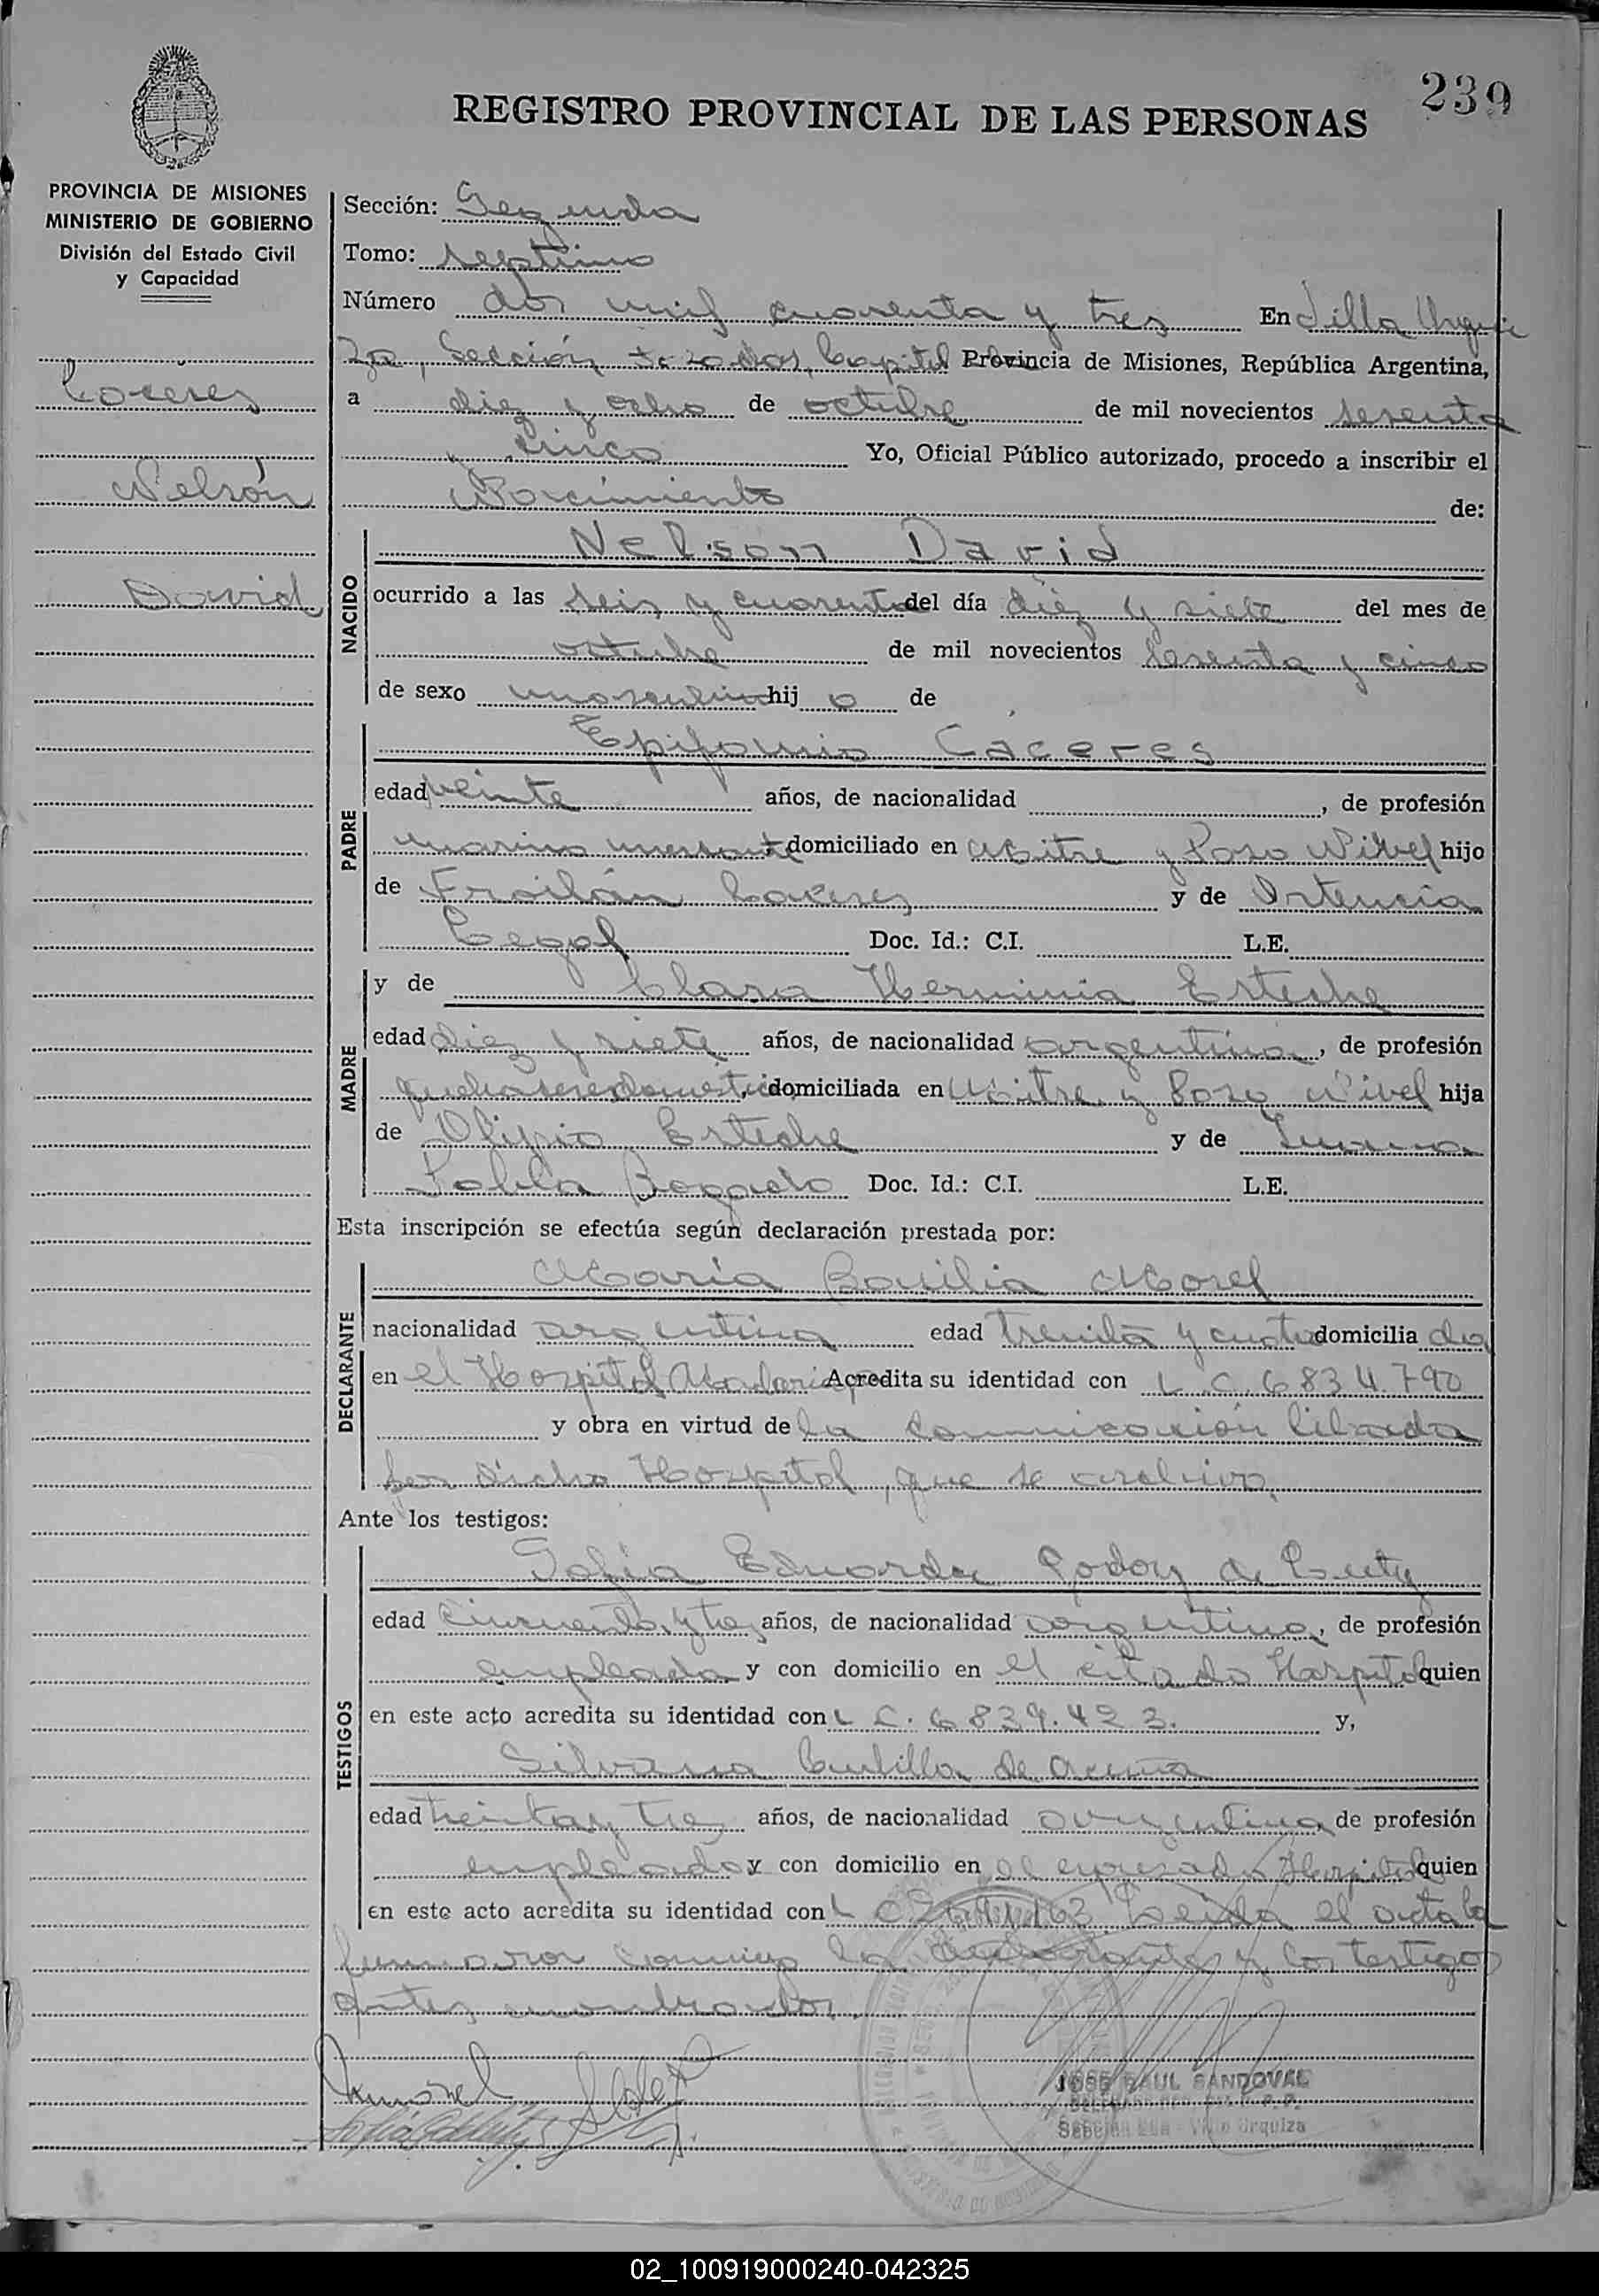 239
REGISTRO PROVINCIAL DE LAS PERSONAS
PROVINCIA DE MISIONES
MINISTERIO DE GOBIERNO
División del Estado Civil
y Capacidad
Cáceres
Nelsón
David
Sección: Segunda
Tomo: septimo
Número dos mil cuarenta y tres En Villa Urquiza
2a, Sección Posadas, Capital Provincia de Misiones, República Argentina,
a diez y ocho de octubre de mil novecientos sesenta
y cinco Yo, Oficial Público autorizado, procedo a inscribir el
Nacimiento de:
NACIDO
Nelson David
ocurrido a las seis y cuarenta del día diez y siete del mes de
octubre de mil novecientos sesenta y cinco
de sexo masculino hij o de
PADRE
Epifanio Cáceres
edad veinte años, de nacionalidad , de profesión
marino mercante domiciliado en Mitre y Paso Nivel hijo
de Froilán Caceres y de Ortencia
Legal Doc. Id.: C.I. L.E.
MADRE
y de Clara Herminia Esteche
edad diez y siete años, de nacionalidad argentina, de profesión
quehaceres domesticos domiciliada en Mitre y Paso Nivel hija
de Olipio Esteche y de
Pabla Bogado Doc. Id.: C.I. L.E.
Esta inscripción se efectúa según declaración prestada por:
DECLARANTE
Maria Basilia Morel
nacionalidad argentina edad treinta y cuatro domicilia da
en el Hospital Madariaga Acredita su identidad con L. C. 6834.790
y obra en virtud de la comunicación librada
por dicho Hospital, que se archiva.
Ante los testigos:
TESTIGOS
Sofia Eduarda Godoy de
edad cincuenta y tres años, de nacionalidad argentina, de profesión
empleada y con domicilio en el citado Hospital quien
en este acto acredita su identidad con L C. 6839.423. y,
Silvana de Acuña
edad treinta y tres años, de nacionalidad argentina de profesión
empleada y con domicilio en el expresado Hospital quien
en este acto acredita su identidad con L C Leida el acta la
firmaron conmigo la declarante y los testigos
antes nombrados.
JOSE RAUL SANDOVAL
Sección 2da - Villa Urquiza
02_100919000240-042325